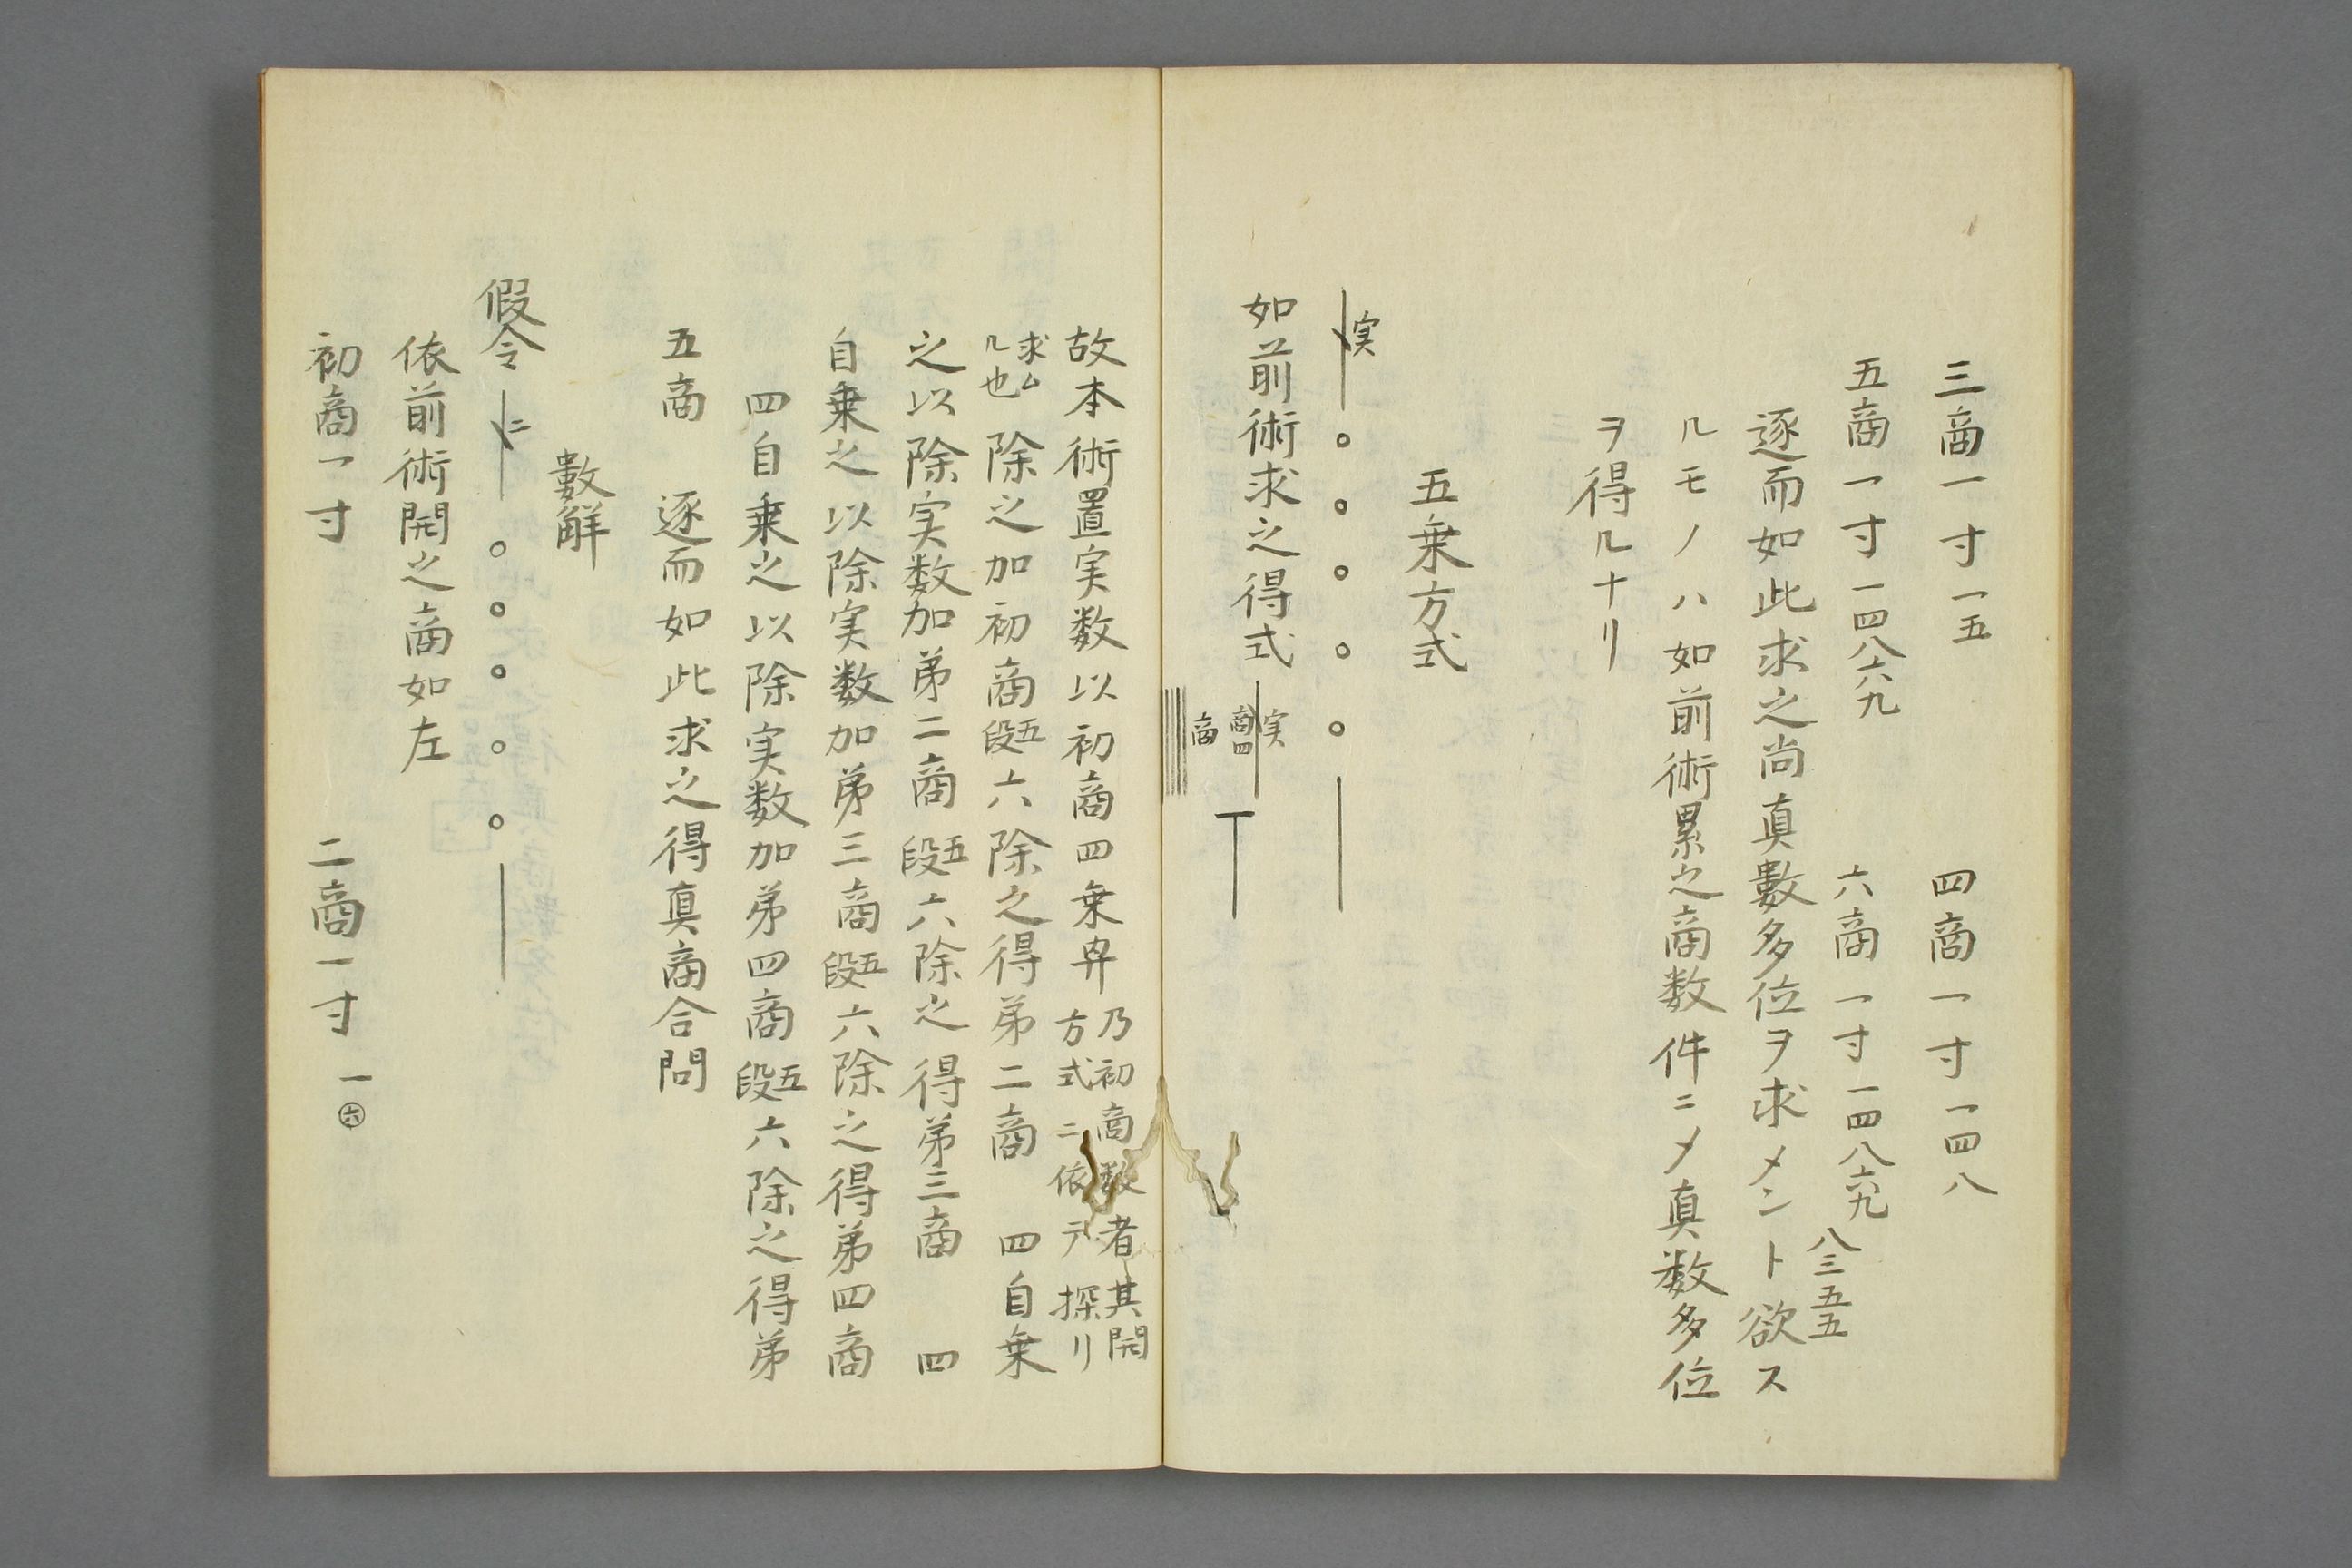 三商一寸一五　四商一寸一四八
五商一寸一四八六九　六商一寸一四八六九八三五五
逐而如此求之尚真數多位ヲ求メント欲ス
ルモノハ如前術累之商数件ニメ真数多位
ヲ得ル十リ
五乗方式
実 〇 〇 〇 〇 〇
如前術求之得式 実 商四 商
故本術置実数以初商四乗冉 乃初商数者其開
方式ニ依テ探リ
求ム
ル也 除之加初商五段六除之得弟二商　四自乗
之以除実数加弟二商五段六除之得弟三商　四
自乗之以除実数加弟三商五段六除之得弟四商
四自乗之以除実数加弟四商五段六除之得弟
五商　逐而如此求之得真商合問
數解
假令 二 〇 〇 〇 〇 〇
依前術開之商如左
初商一寸　二商一寸一六